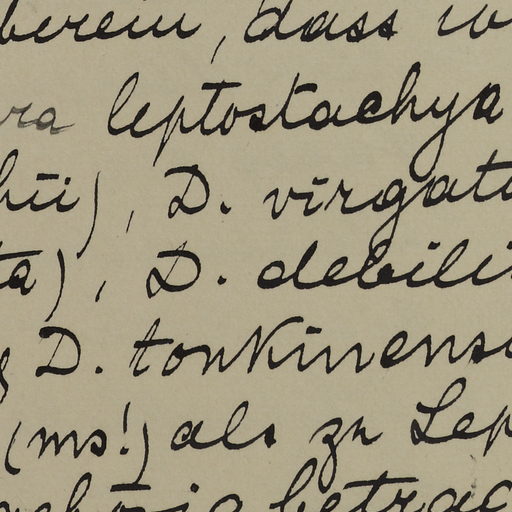 berein, dass w
ra leptostachya
hii), D. virgat
ta), D. debili
D. tonkinens
(ms!) als zu Lep
betrac